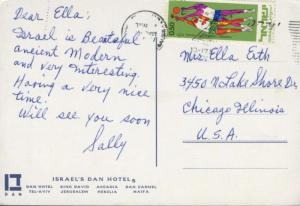 Dear Ella:
Israel is Beautiful
ancient Modern
and very Interesting.
Having a very nice
time.
Will see you soon
Sally
Mrs. Ella Erth
3450 N Lake Shore Dr.
Chicago Illinois
U.S.A.
0.50
ISRAEL'S DAN HOTELS
DAN
DAN HOTEL
TEL-AVIV
KING DAVID
JERUSALEM
ACCADIA
HERZLIA
DAN CARMEL
HAIFA